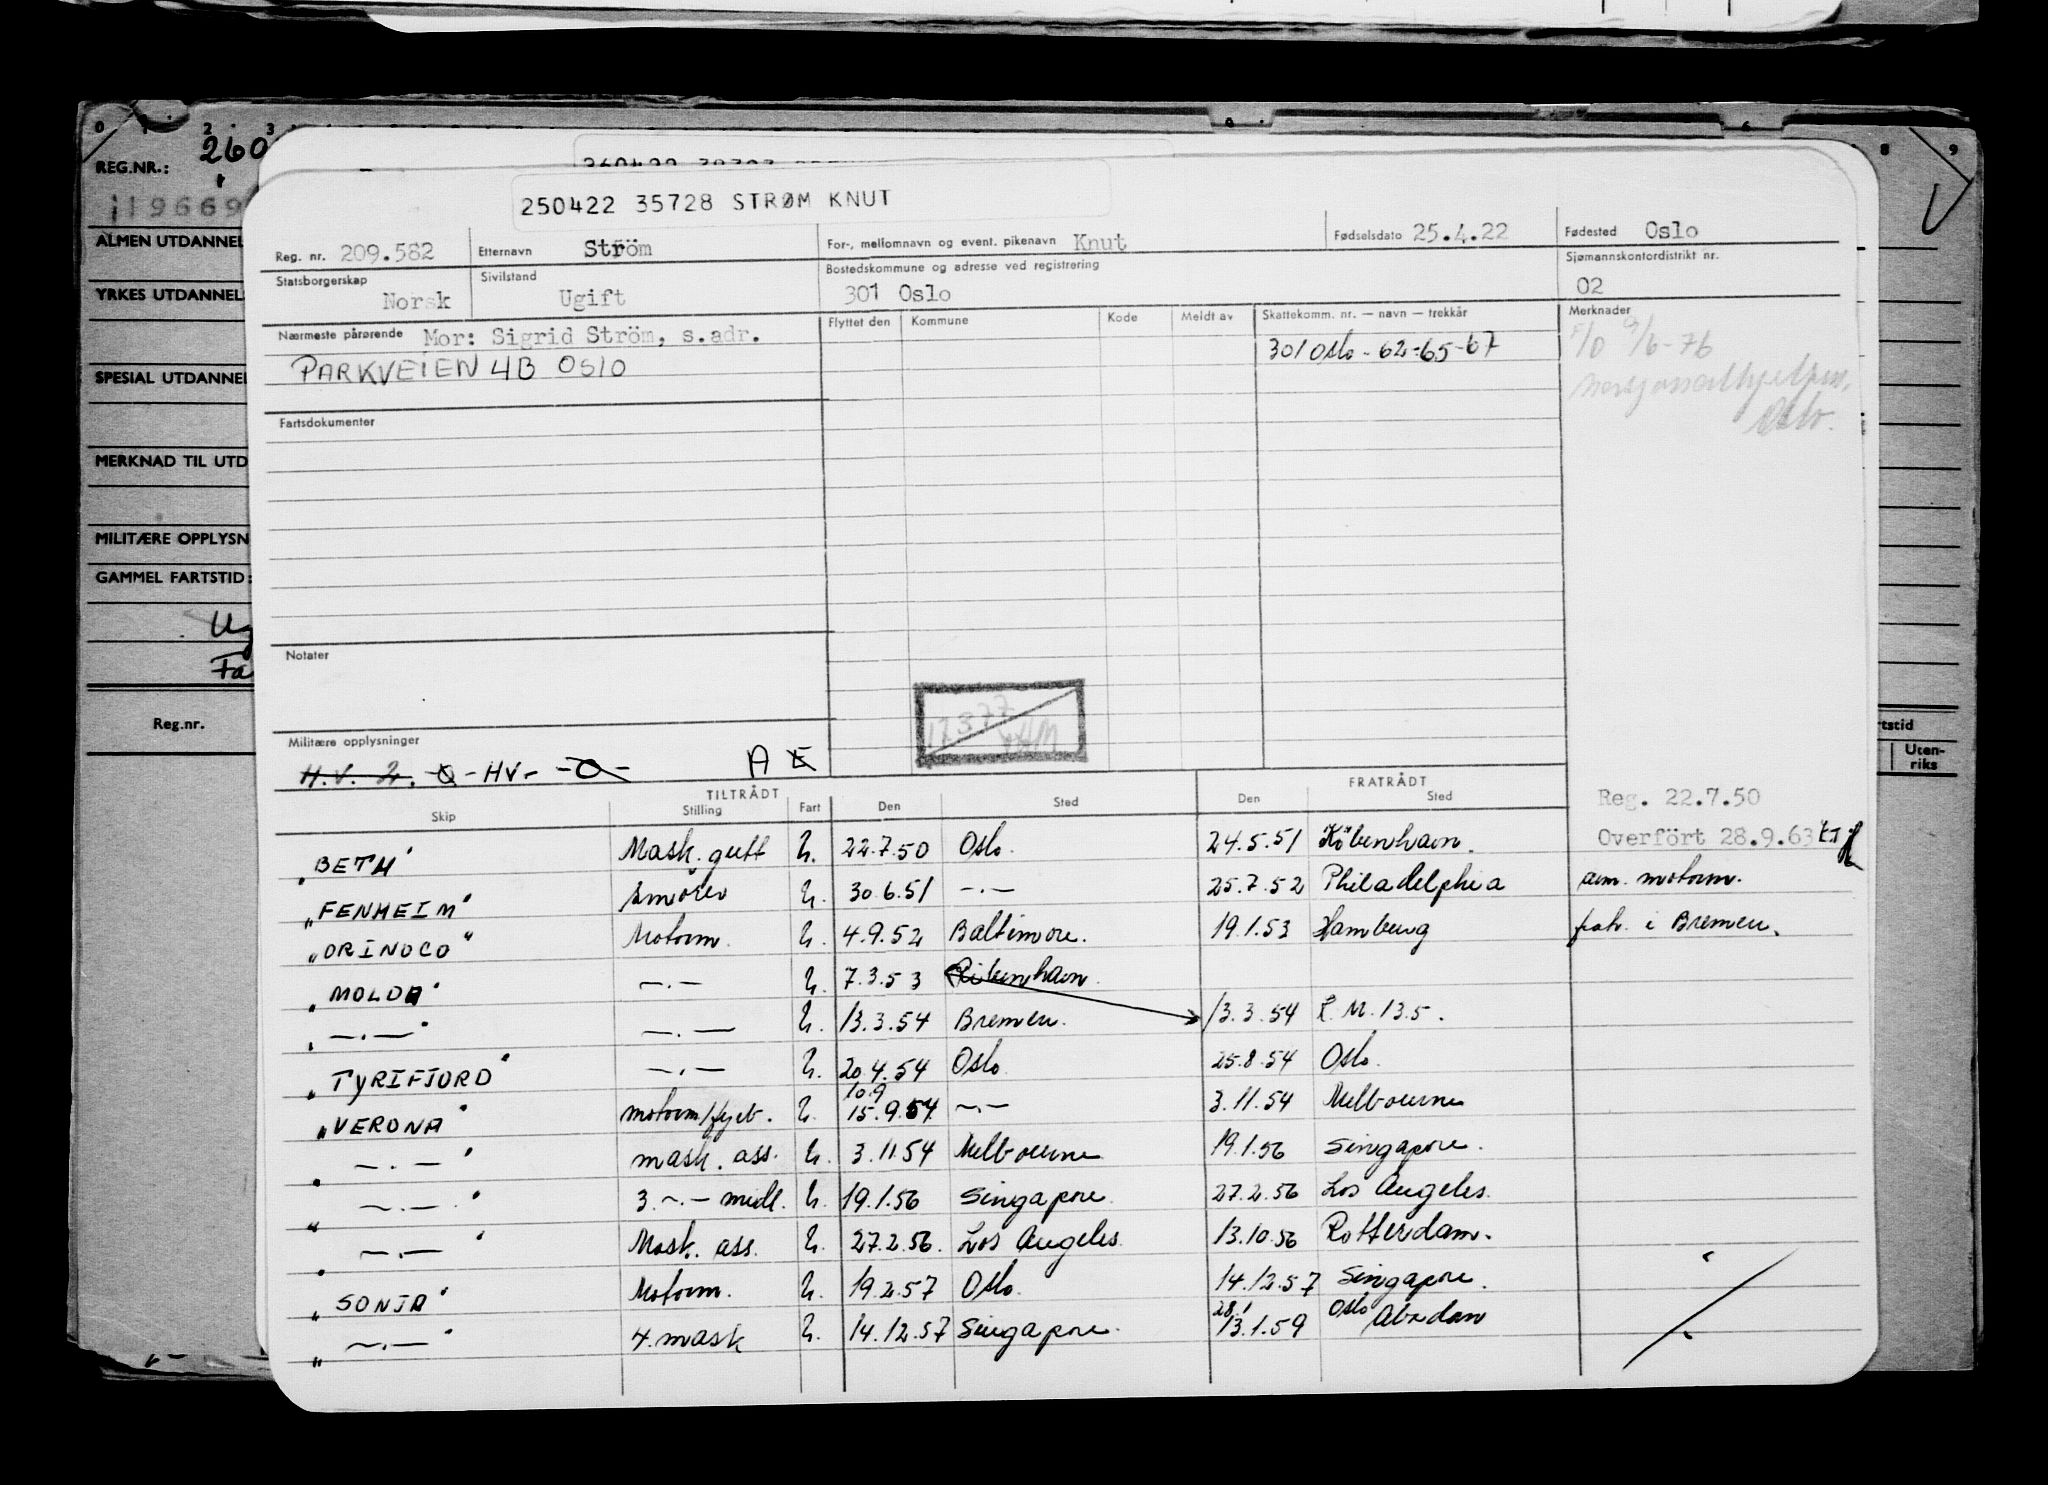 0 1 2 3
8 9
REG.NR.: 260
19669
ALMEN UTDANNEL
YRKES UTDANNELS
SPESIAL UTDANNEL
MERKNAD TIL UTD
MILITÆRE OPPLYSN
GAMMEL FARTSTID:
Ug
Fa
Reg.nr.
rtstid
Uten-
riks
250422 35728 STRØM KNUT
Reg. nr. 209.582 Etternavn Ström For-, mellomnavn og event. pikenavn Knut Fødselsdato 25.4.22 Fødested Oslo
Statsborgerskap Norsk Sivilstand Ugift Bostedskommune og adresse ved registrering 301 Oslo Sjømannskontordistrikt nr. 02
Nærmeste pårørende Mor: Sigrid Ström, s.adr. Flyttet den Kommune Kode Meldt av Skattekomm. nr. — navn — trekkår Merknader
PARKVEIEN 4B OSLO 301 Oslo - 62-65-67
9/6-76
Oslo.
Fartsdokumenter
Notater
17377
Militære opplysninger
H.V. 2. -O- HV- -O- A E
TILTRÅDT FRATRÅDT
Skip Stilling Fart Den Sted Den Sted
Reg. 22.7.50
Overfört 28.9.63
"BETH" Mask. gutt U. 22.7.50 Oslo. 24.5.51 Köbenhavn.
"FENHEIM" Smörer U. 30.6.51 —.— 25.7.52 Philadelphia am. motorm.
"ORINOCO" Motorm. U. 4.9.52 Baltimore. 19.1.53 Hamburg frat. i Bremen.
"MOLDA" —.— U. 7.3.53 Köbenhavn
"—.—" —.— U. 13.3.54 Bremen. 13.3.54 L.M. 13.5.
"TYRIFJORD" —.— U. 20.4.54 Oslo 25.8.54 Oslo.
"VERONA" motorm/fyrb. U. 10.9 15.9.54 —.— 3.11.54 Melbourne
"—.—" mask. ass. U. 3.11.54 Melbourne 19.1.56 Singapore.
"—.—" 3. —.— midl. U. 19.1.56 Singapore 27.2.56 Los Angeles.
"—.—" Mask. ass. U. 27.2.56. Los Angeles 13.10.56 Rotterdam.
"SONJA" Motorm. U. 19.2.57 Oslo. 14.12.57 Singapore.
"—.—" 4. mask U. 14.12.57 Singapore. 28.1 13.1.59 Oslo Abadan